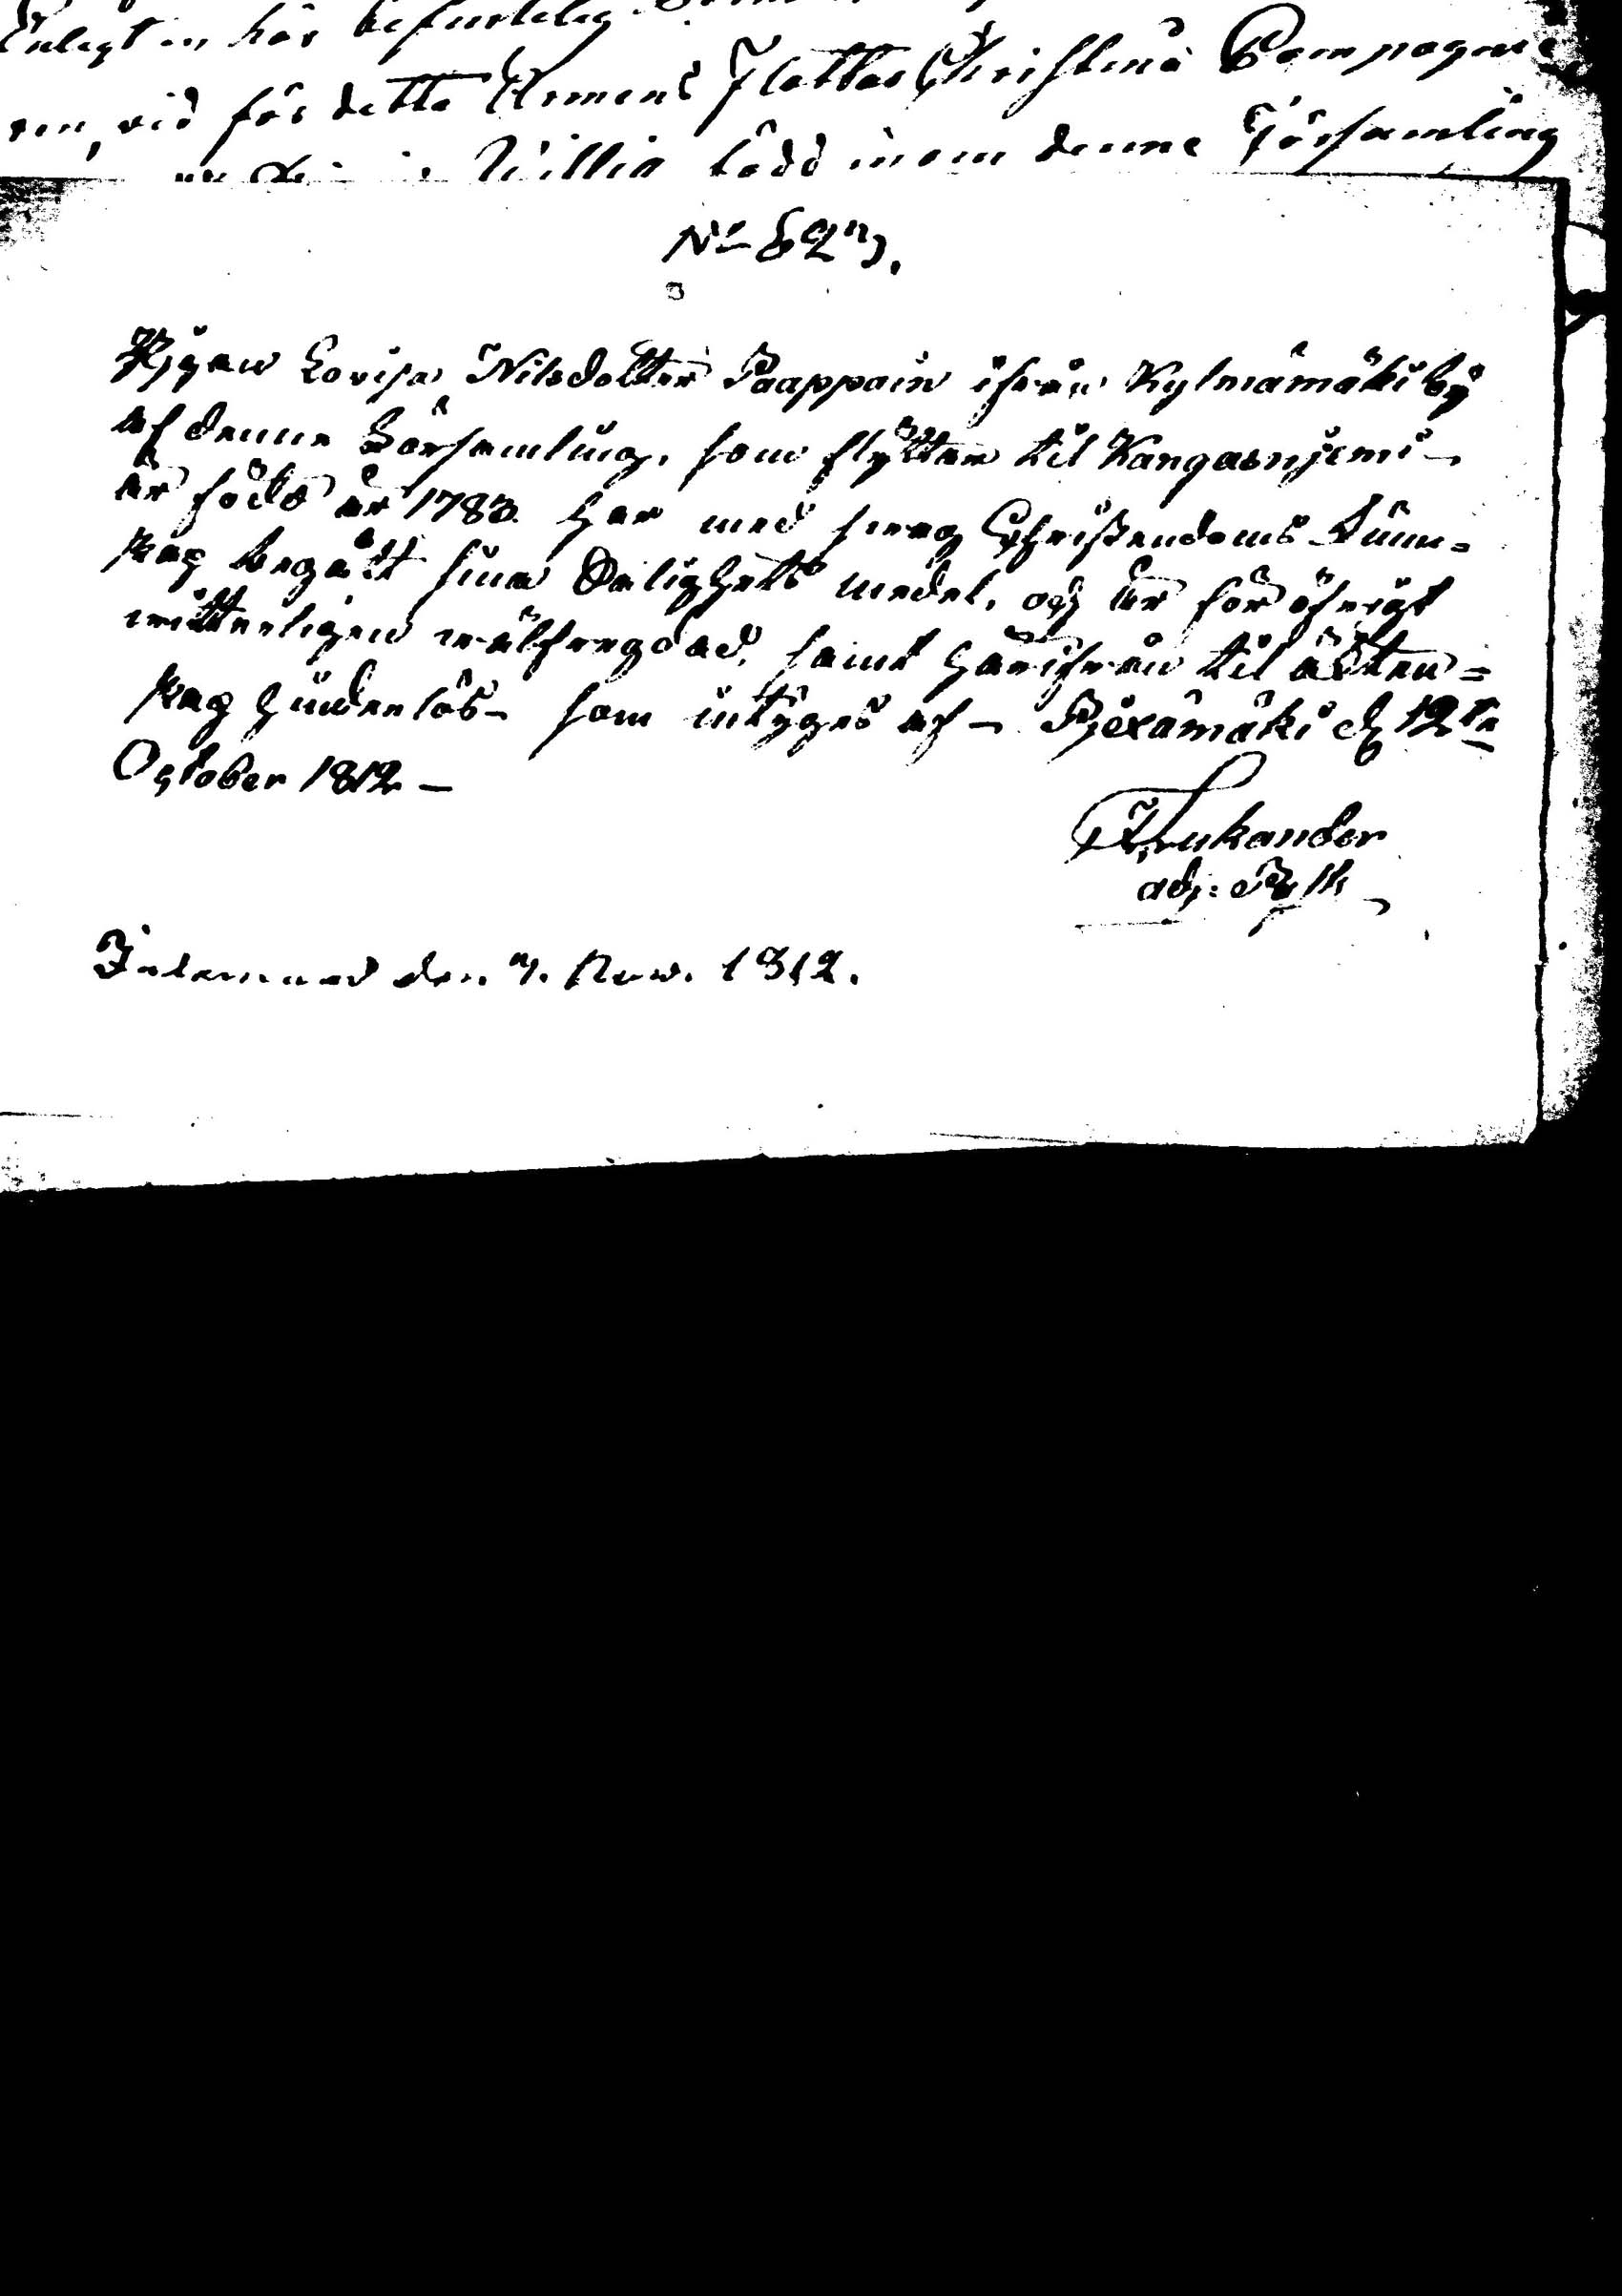 Enligt en här
vid för detta Armens Flottas Christina Compagnie
Willia född inom denne Församling
No 827.
Pigan Lovisa Nilsdotter Paappain ifrån Kylmämäki by
af denne Församling, som flyttar til Kangasnjemi –
är född år 1783 har med swag Christendoms kunn=
skap begått sina Salighets medel, och är för öfrigt
witterligen wälfregdad, samt härifrån til äkten=
skap hinderlös – som intygas af – Pjexämäki d. 12te
October 1812 –
adj:
Inlemnad den 7. Nov. 1812.